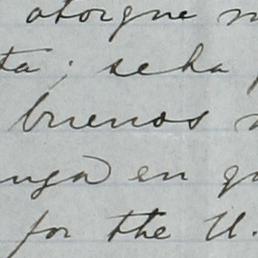 otorgue
ta; se ha
buenos
nga en
for the U.